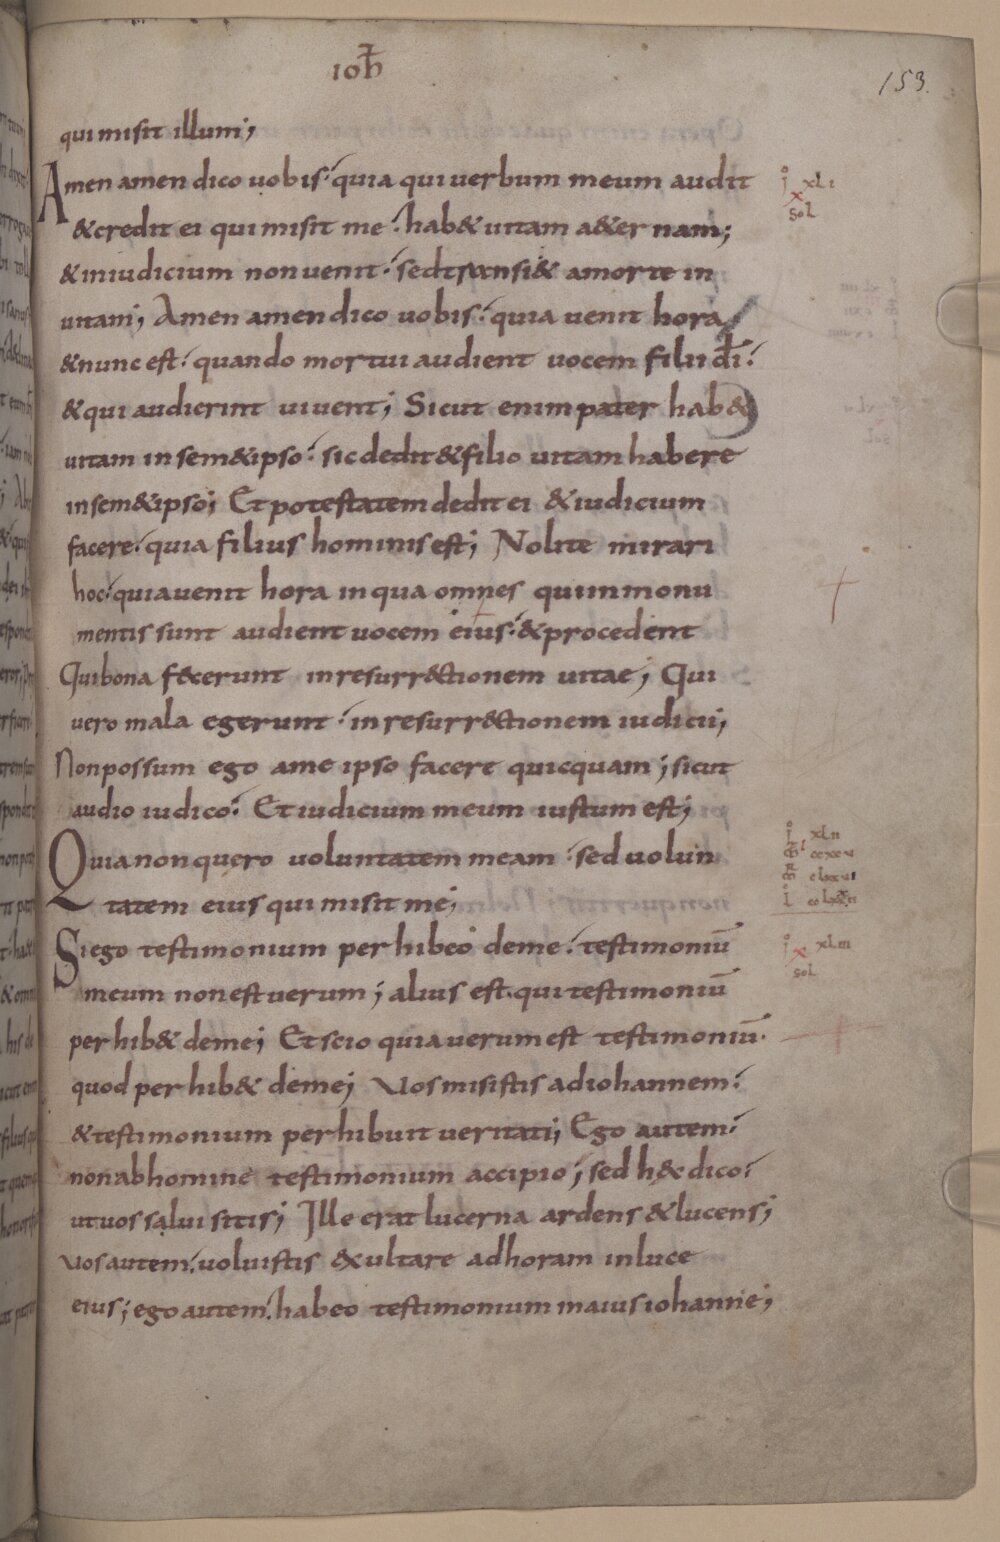 IOH̄
153.
qui misit illum;
Amen amen dico uobis. quia qui uerbum meum audit
& credit ei qui misit me. hab& uitam a&ernam;
& in iudicium non uenit. sed transi& a morte in
uitam; Amen amen dico uobis. quia uenit hora
& nunc est. quando mortui audient uocem filii dī.
& qui audierint uiuent; Sicut enim pater hab&
uitam in sem&ipso. sic dedit & filio uitam habere
in sem&ipso; Et potestatem dedit ei & iudicium
facere. quia filius hominis est; Nolite mirari
hoc. quia uenit hora in qua omnes qui in monu
mentis sunt audient uocem eius. & procedent
Qui bona fecerunt in resurr&ctionem uitae; Qui
uero mala egerunt. in resurr&ctionem iudicii;
Non possum ego a me ipso facere quicquam; sicut
audio iudico. Et iudicium meum iustum est;
Quia non quero uoluntatem meam. sed uolun
tatem eius qui misit me;
Si ego testimonium perhibeo de me. testimoniū
meum non est uerum; alius est. qui testimoniū
perhib& de me; Et scio quia uerum est testimoniū.
quod perhib& de me; Vos misistis ad iohannem.
& testimonium perhibuit ueritati; Ego autem.
non ab homine testimonium accipio; sed h&c dico.
ut uos salui sitis; Ille erat lucerna ardens & lucens;
Vos autem. uoluistis &xultare ad horam in luce
eius; ego autem. habeo testimonium maius iohanne;
xLi
x
sol
xLii
xLiii
x
sol